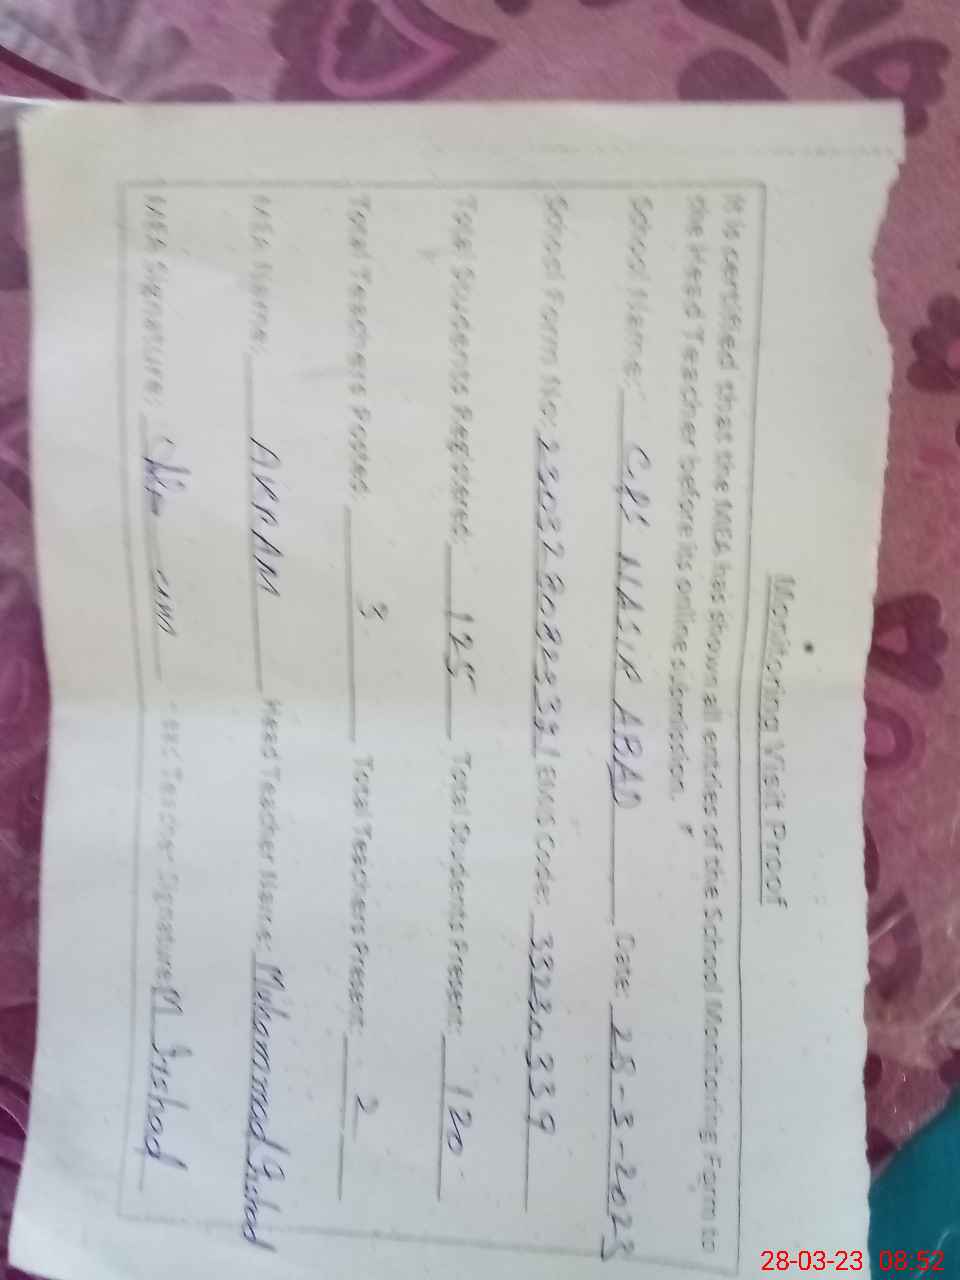 Monitoring Visit Proof
It is certified that the MEA has shown all entries of the School Monitoring Form to
the Head Teacher before its online submission.
School Name: GPS NASIR ABAD Date: 28-3-2023
School Form No: EMIS Code: 33230339
Total Students Registered: 125 Total Students Present: 120
Total Teachers Posted: 3 Total Teachers Present: 2
MEA Name: AKRAM Head Teacher Name: Muhammad Irshad
MEA Signature: Head Teacher Signature: M Irshad
28-03-23 08:52